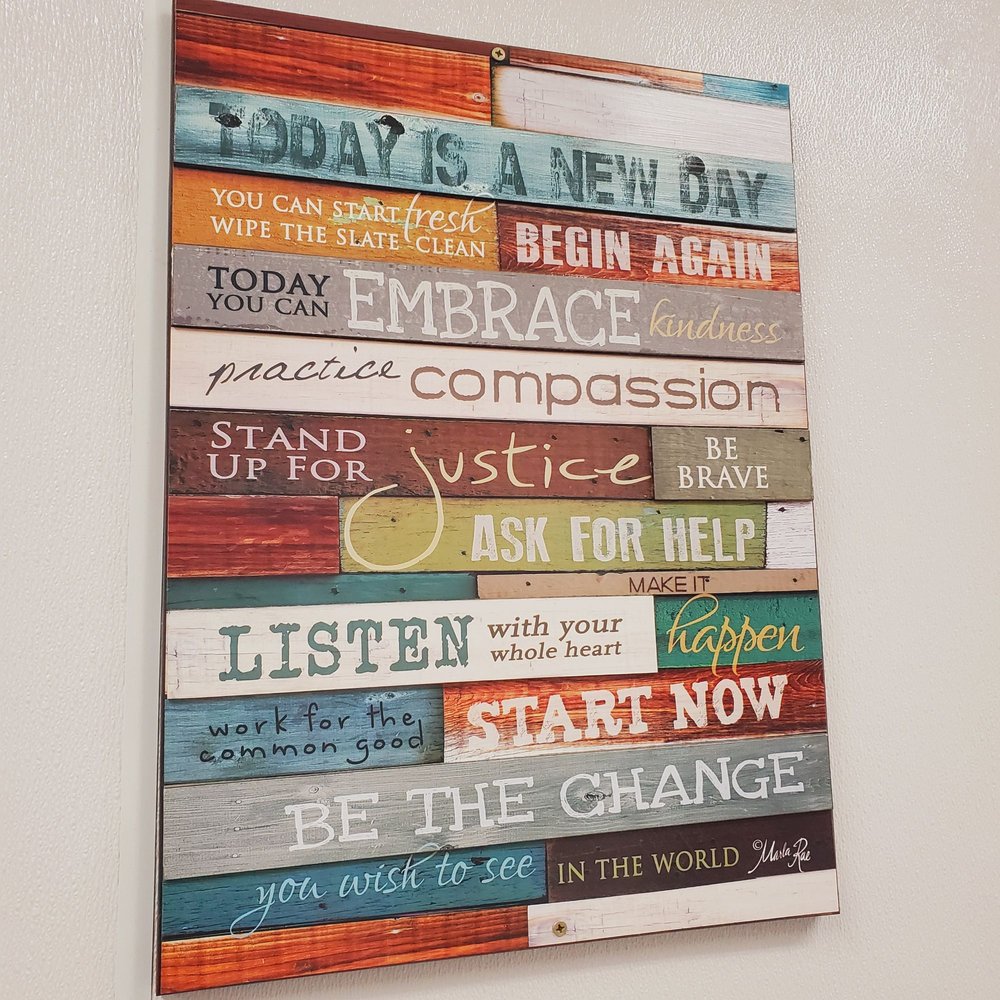 TODAY IS A NEW DAY
YOU CAN START fresh
WIPE THE SLATE CLEAN
BEGIN AGAIN
TODAY
YOU CAN
EMBRACE kindness
practice compassion
STAND
UP FOR
justice
BE
BRAVE
ASK FOR HELP
MAKE IT
happen
LISTEN
with your
whole heart
work for the
common good
START NOW
BE THE CHANGE
you wish to see
IN THE WORLD
©Marla Rae